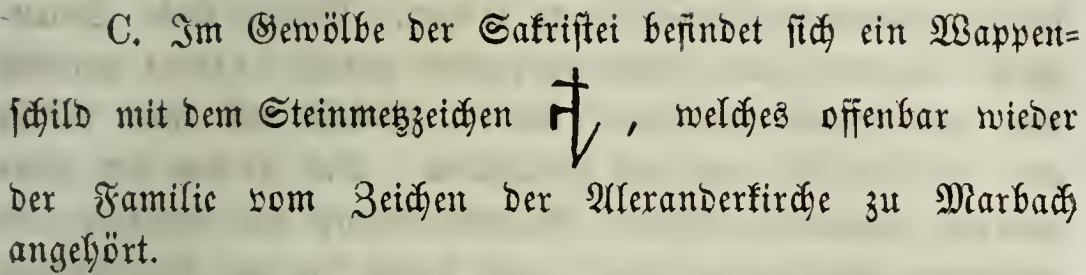 C. Im Gewölbe der Sakristei befindet sich ein Wappen=
schild mit dem Steinmetzzeichen , welches offenbar wieder
der Familie vom Zeichen der Alexanderkirche zu Marbach
angehört.